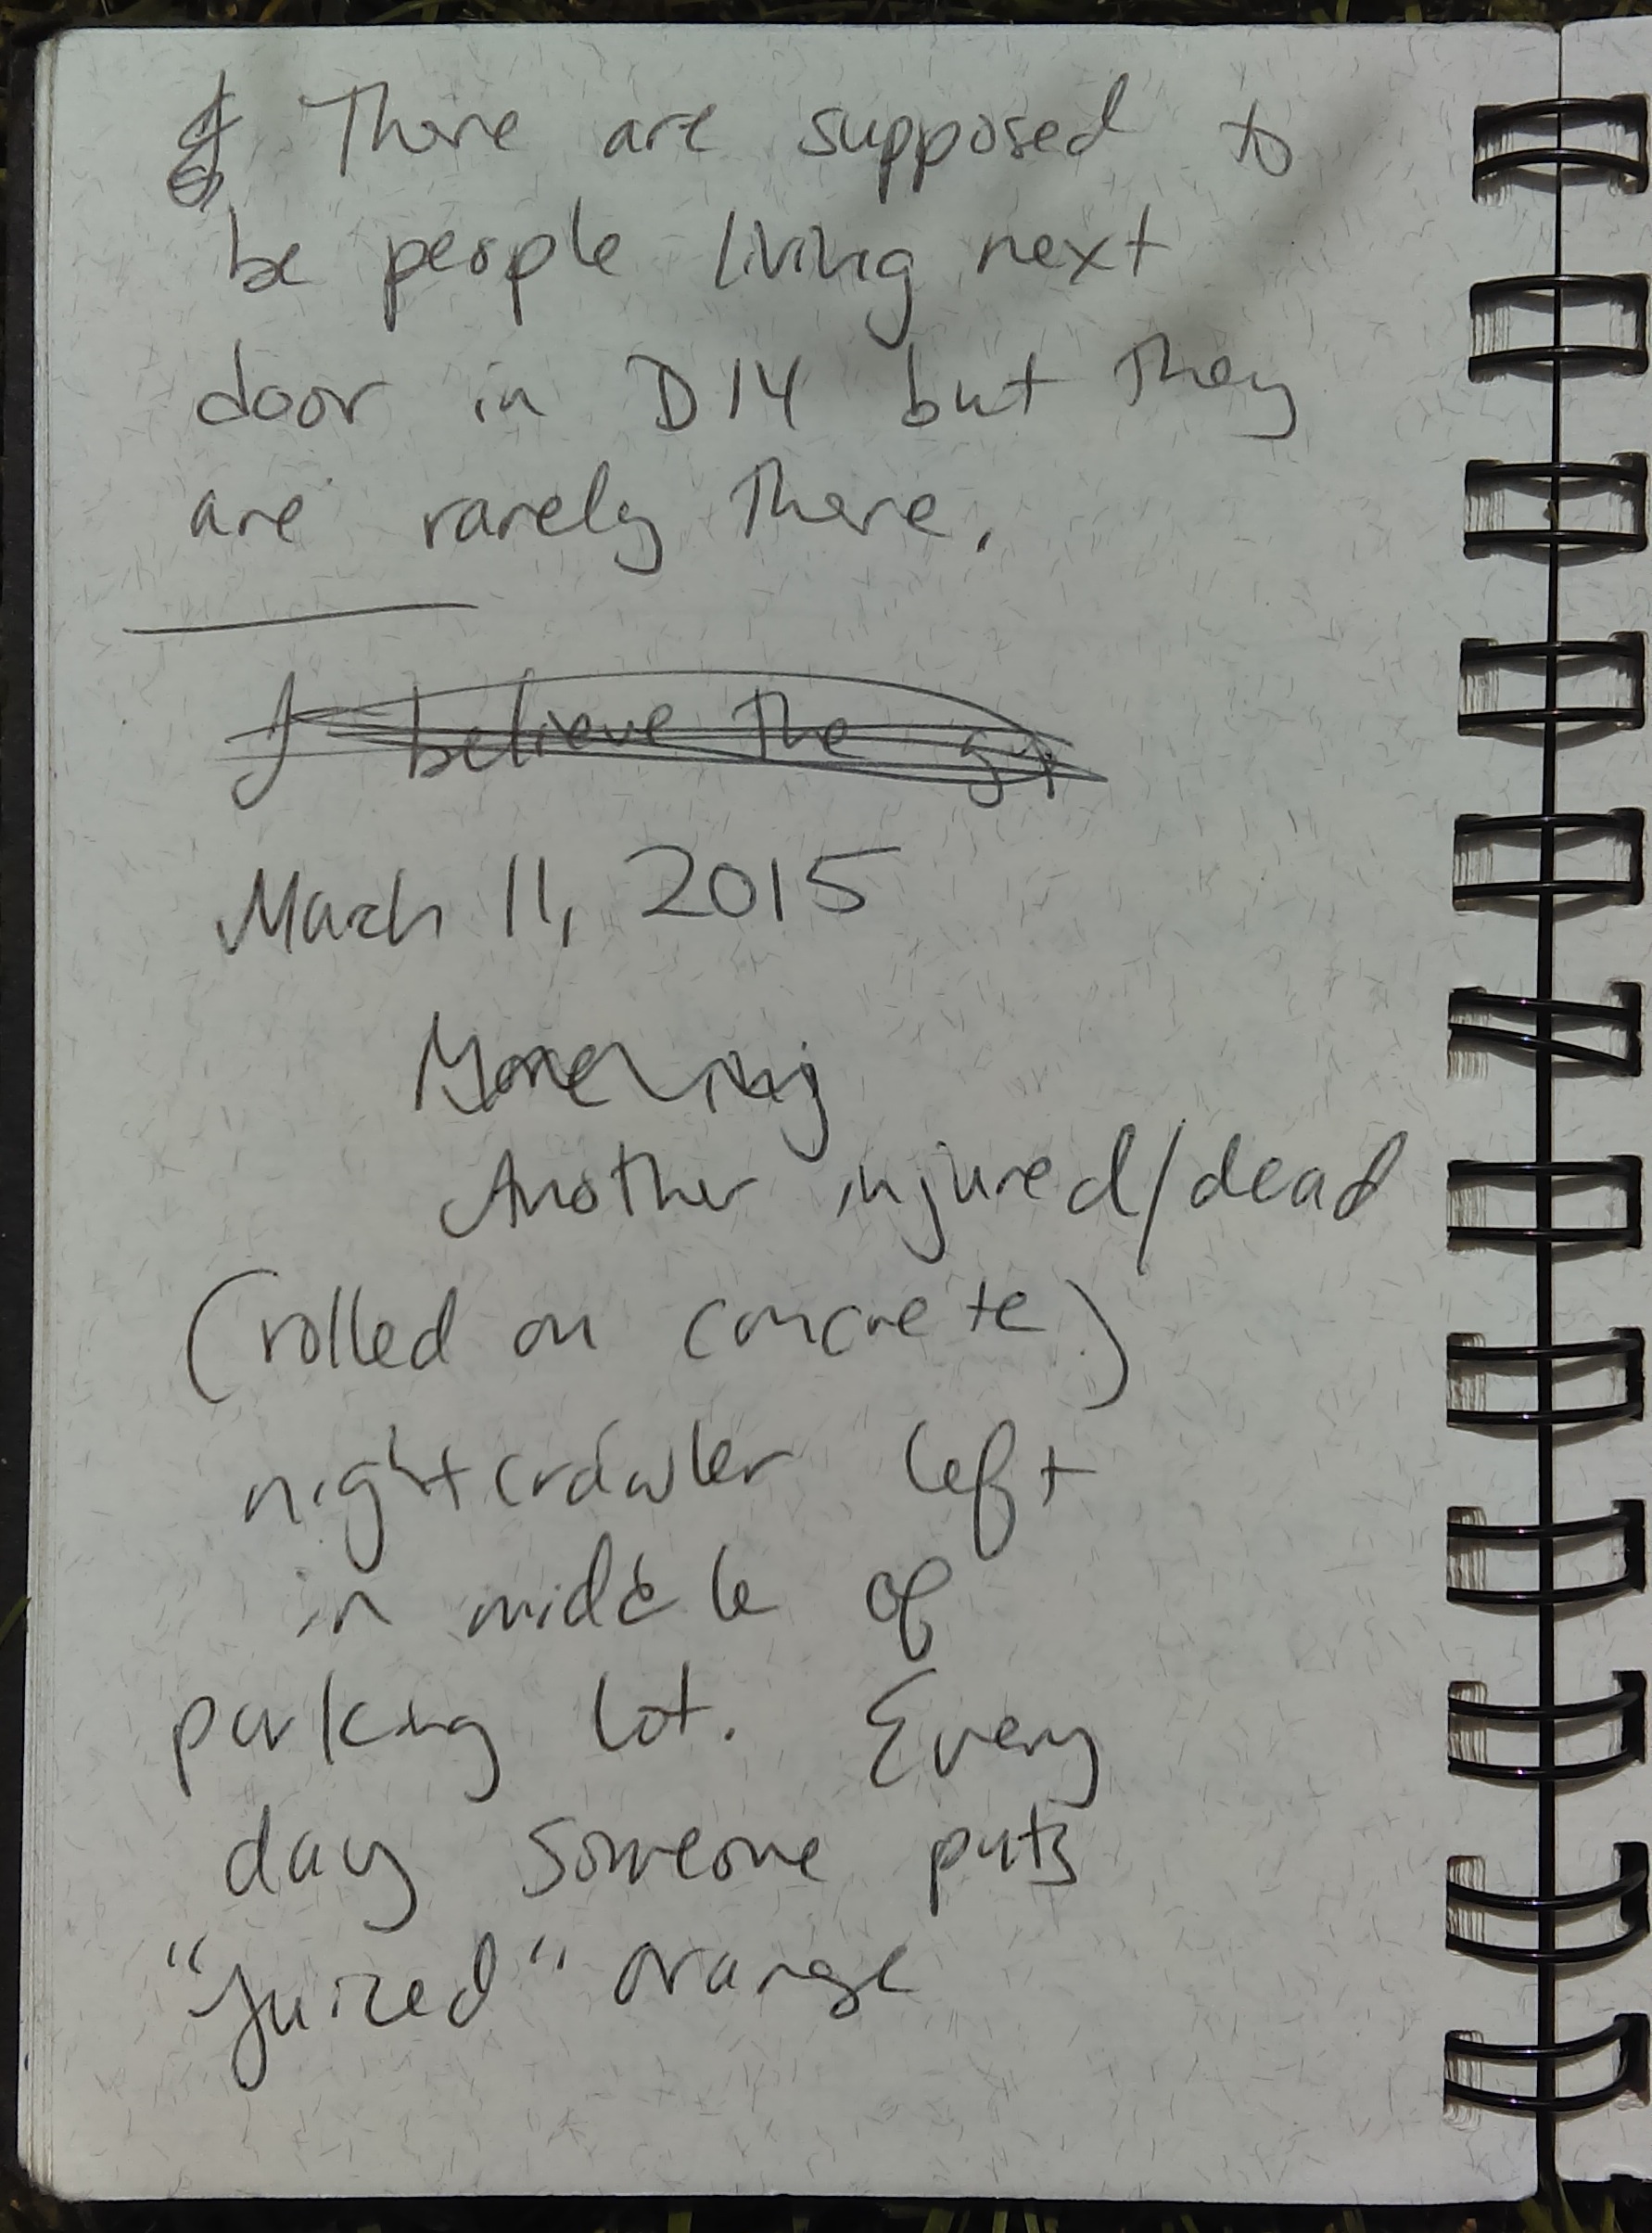 There are supposed to
be people living next
door in D14 but they
are rarely there.
I believe the
March 11, 2015
Another injured/dead
(rolled on concrete)
nightcrawler left
in middle of
parking lot. Every
day someone puts
"juiced" orange